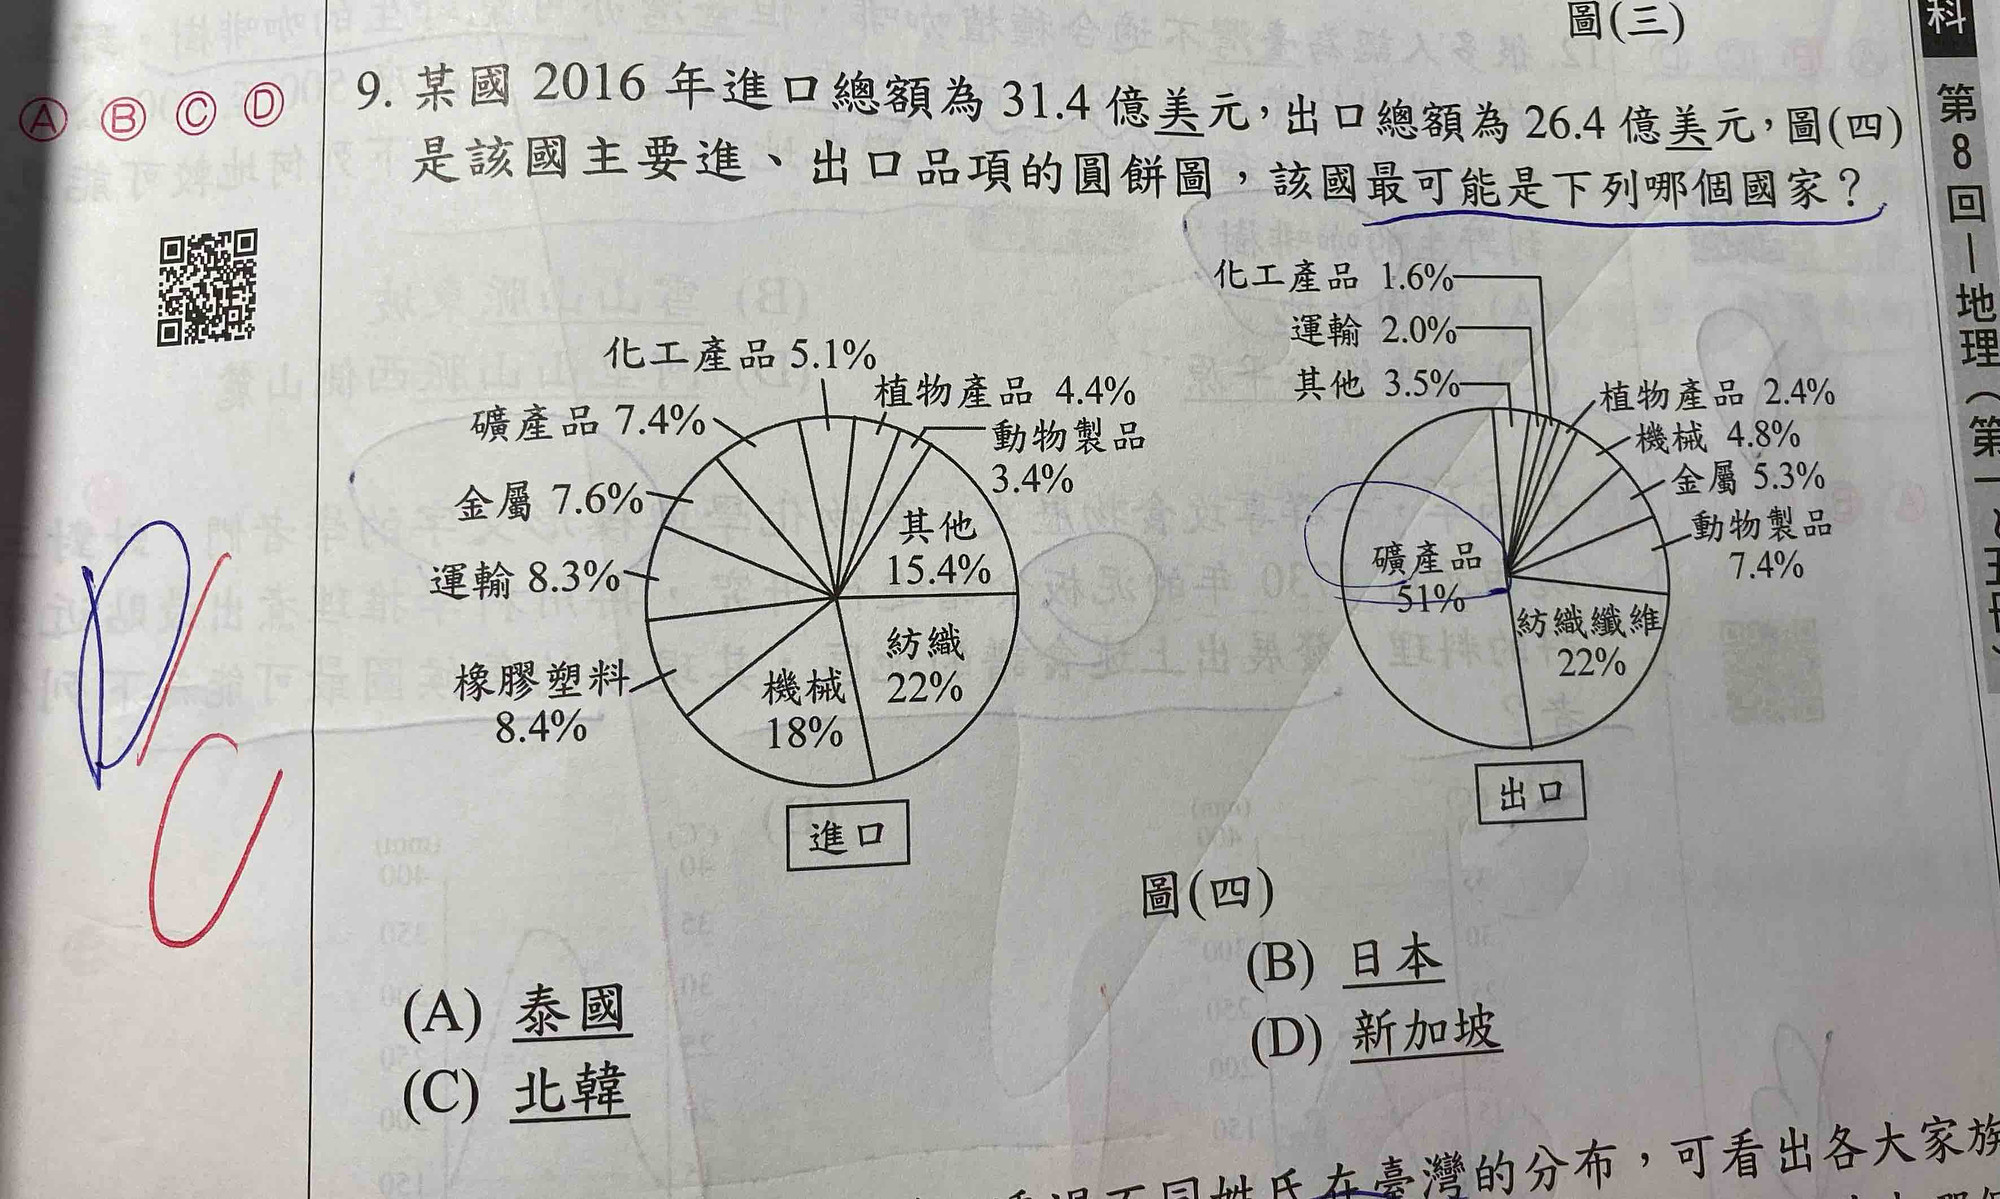 圖(三)
科
第8回－地理（第一
Ⓐ Ⓑ Ⓒ Ⓓ
9. 某國 2016 年進口總額為 31.4 億美元，出口總額為 26.4 億美元，圖(四)
是該國主要進、出口品項的圓餅圖，該國最可能是下列哪個國家？
化工產品 5.1%
植物產品 4.4%
礦產品 7.4%
動物製品
3.4%
金屬 7.6%
其他
15.4%
運輸 8.3%
紡織
22%
橡膠塑料
8.4%
機械
18%
進口
化工產品 1.6%
運輸 2.0%
其他 3.5%
植物產品 2.4%
機械 4.8%
金屬 5.3%
動物製品
7.4%
礦產品
51%
紡織纖維
22%
出口
圖(四)
D
C
(A) 泰國
(B) 日本
(C) 北韓
(D) 新加坡
不同姓氏在臺灣的分布，可看出各大家族